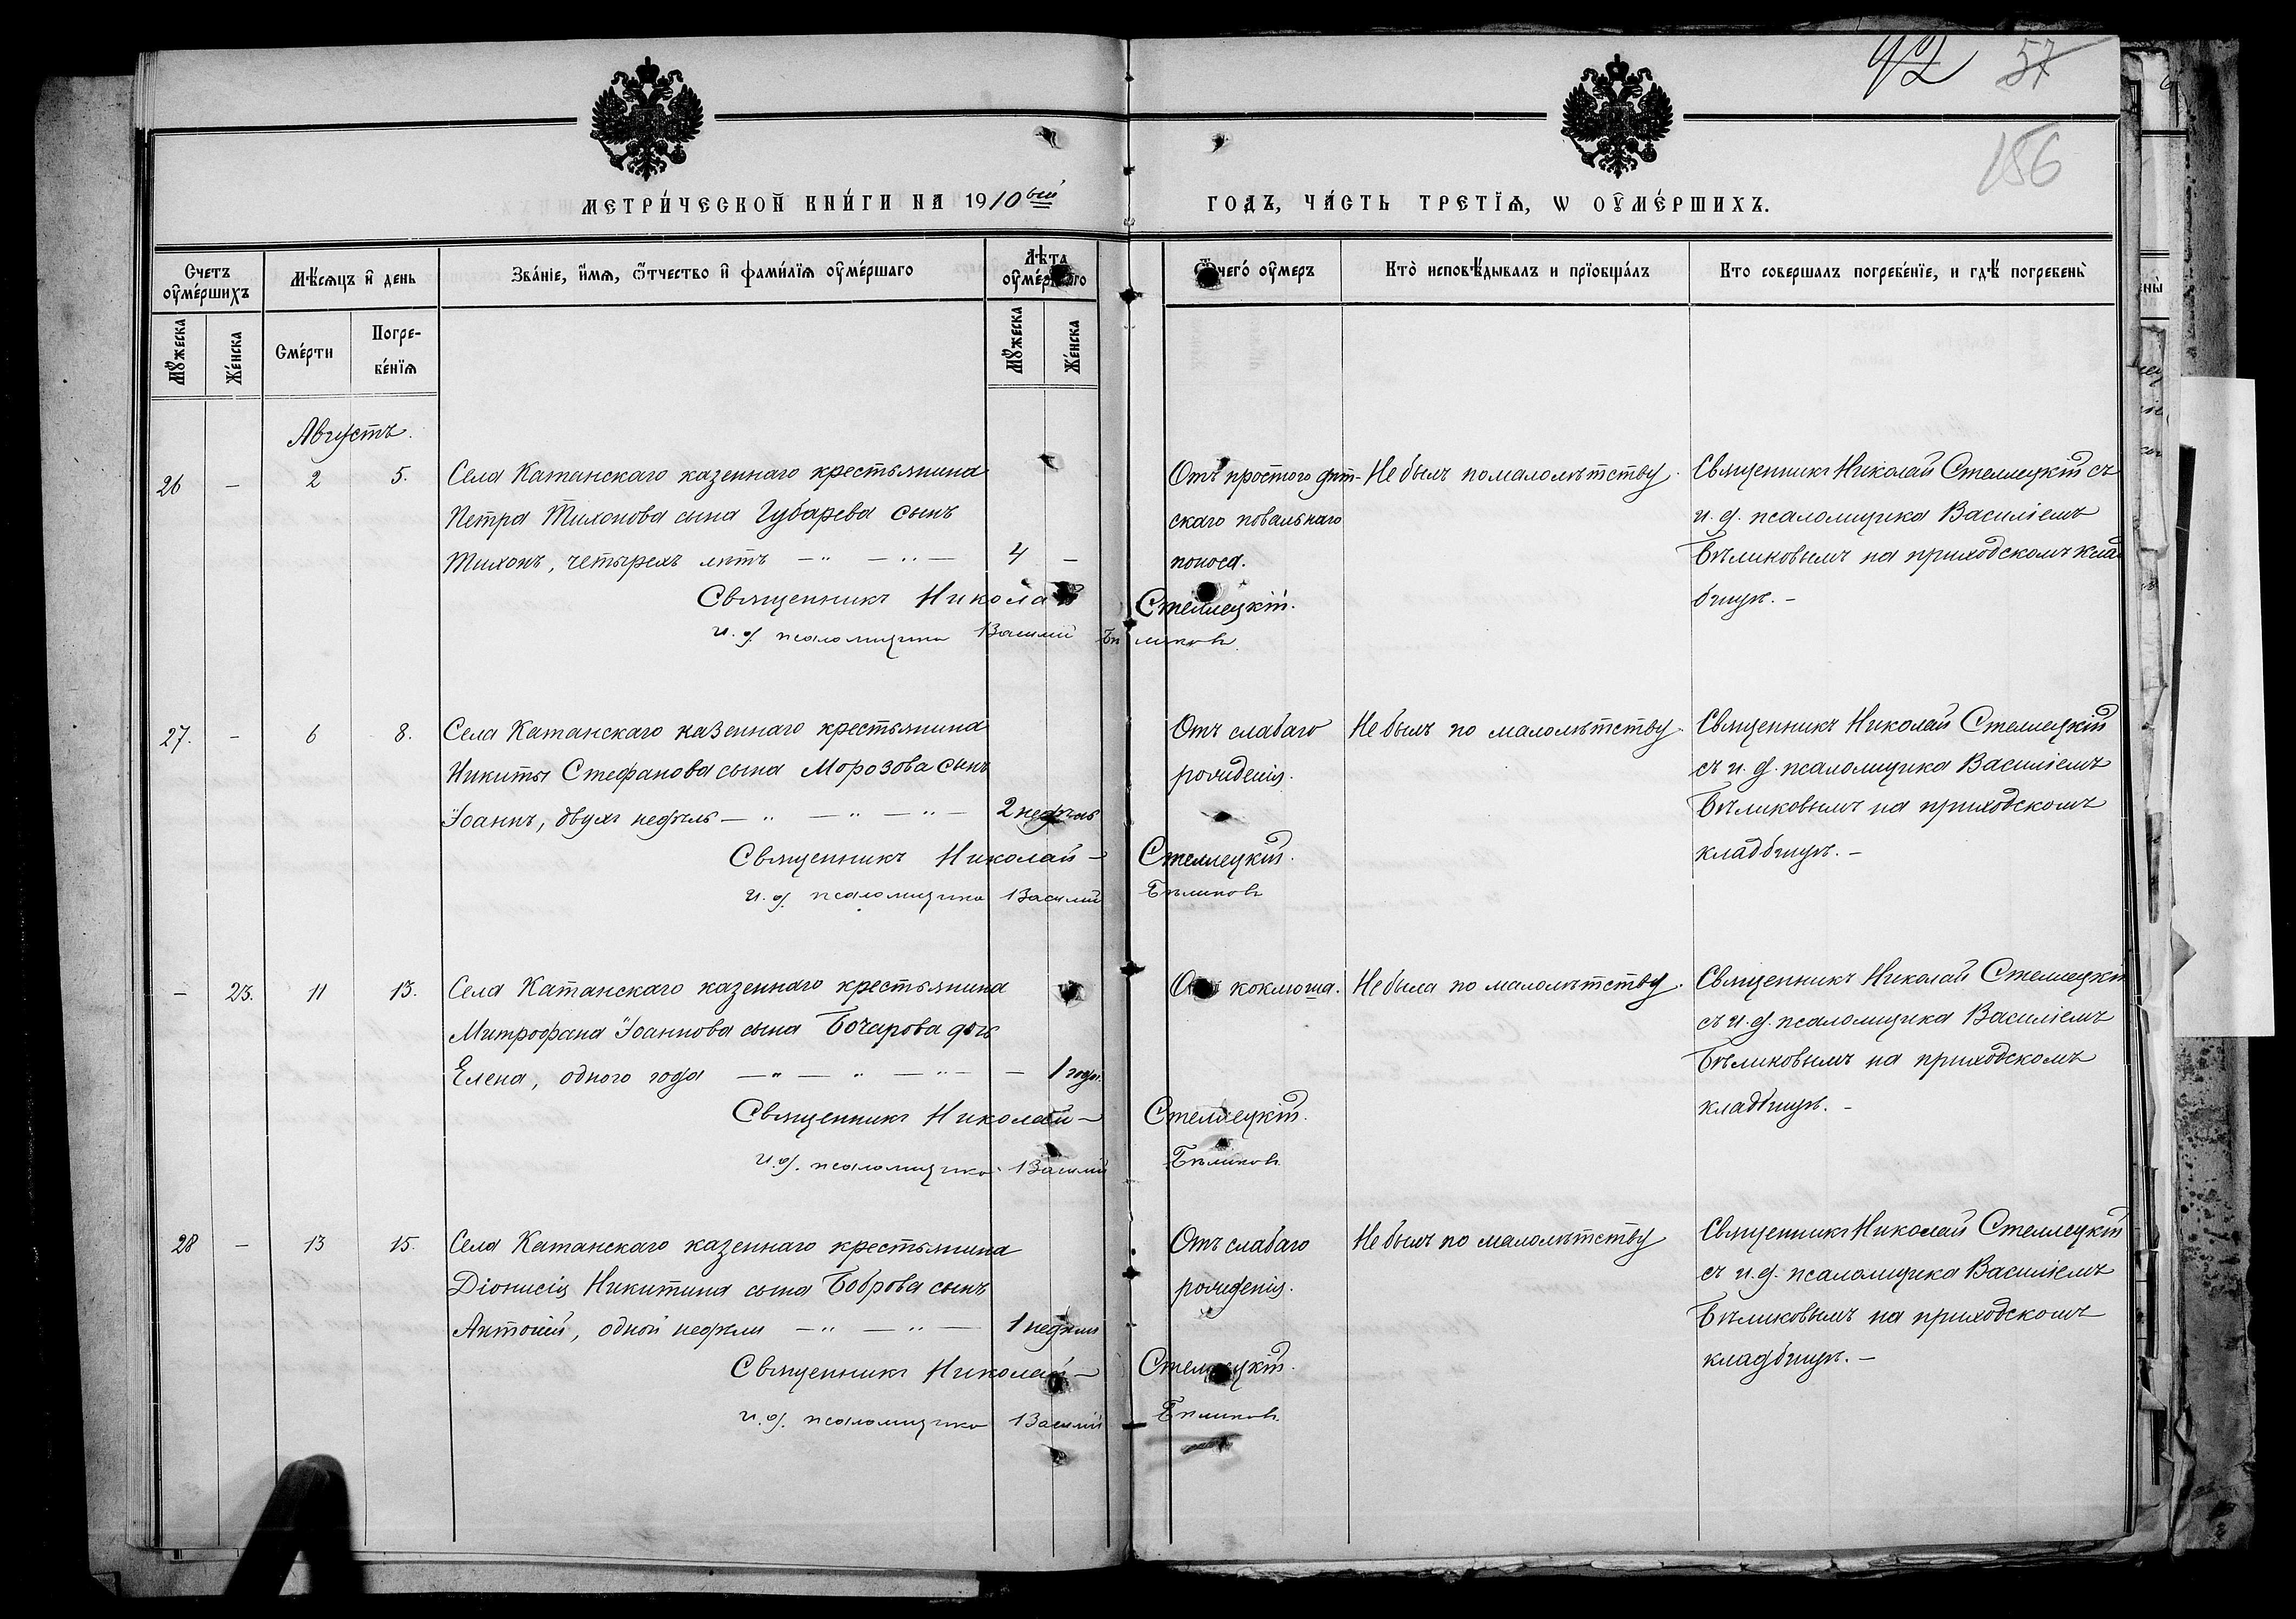 92 57
156
МЕТРИ́ЧЕСКОЙ КНИ́ГИ НА 1910ый ГОДЪ, ЧА́СТЬ ТРЕТІЯ, Ѡ ОУМЕ́РШИХЪ.
Счетъ оумершихъ
Мѣсяцъ и день
Званіе, имя, отчество и фамилія оумершаго
Лѣта оумершаго
Отчего оумеръ
Кто исповѣдывалъ и пріобщалъ
Кто совершалъ погребеніе, и гдѣ погребены
Мужеска
Женска
Смерти
Погребенія
Мужеска
Женска
Августъ.
26 – 2 5. Села Катанскаго казеннаго крестьянина
Петра Тихонова сына Губарева сынъ
Тихонъ, четырехъ лѣтъ – " – " – 4 –
Отъ простого дѣт-
скаго повальнаго
поноса.
Не былъ по малолѣтству.
Священникъ Николай Стеллецкій съ
и. д. псаломщика Василіемъ
Бѣликовымъ на приходскомъ клад
бищѣ. –
Священникъ Николай Стеллецкій.
и. д. псаломщика Василій Бѣликовъ.
27. – 6 8. Села Катанскаго казеннаго крестьянина
Никиты Стефанова сына Морозова сынъ
Іоаннъ, двухъ недѣль – " – " – " – 2 недѣль
Отъ слабаго
рожденія.
Не былъ по малолѣтству.
Священникъ Николай Стеллецкій
съ и. д. псаломщика Василіемъ
Бѣликовымъ на приходскомъ
кладбищѣ. –
Священникъ Николай – Стеллецкій.
и. д. псаломщика Василій Бѣликовъ
– 23. 11 13. Села Катанскаго казеннаго крестьянина
Митрофана Іоаннова сына Бочарова дочь
Елена, одного года – " – " – " – – 1 годъ.
Отъ коклюша.
Не была по малолѣтству.
Священникъ Николай Стеллецкій
съ и. д. псаломщика Василіемъ
Бѣликовымъ на приходскомъ
кладбищѣ. –
Священникъ Николай – Стеллецкій.
и. д. псаломщика Василій Бѣликовъ.
28 – 13 15. Села Катанскаго казеннаго крестьянина
Діонисія Никитина сына Боброва сынъ
Антоній, одной недѣли – " – " – 1 недѣли
Отъ слабаго
рожденія.
Не былъ по малолѣтству
Священникъ Николай Стеллецкій
съ и. д. псаломщика Василіемъ
Бѣликовымъ на приходскомъ
кладбищѣ. –
Священникъ Николай – Стеллецкій.
и. д. псаломщика Василій Бѣликовъ.